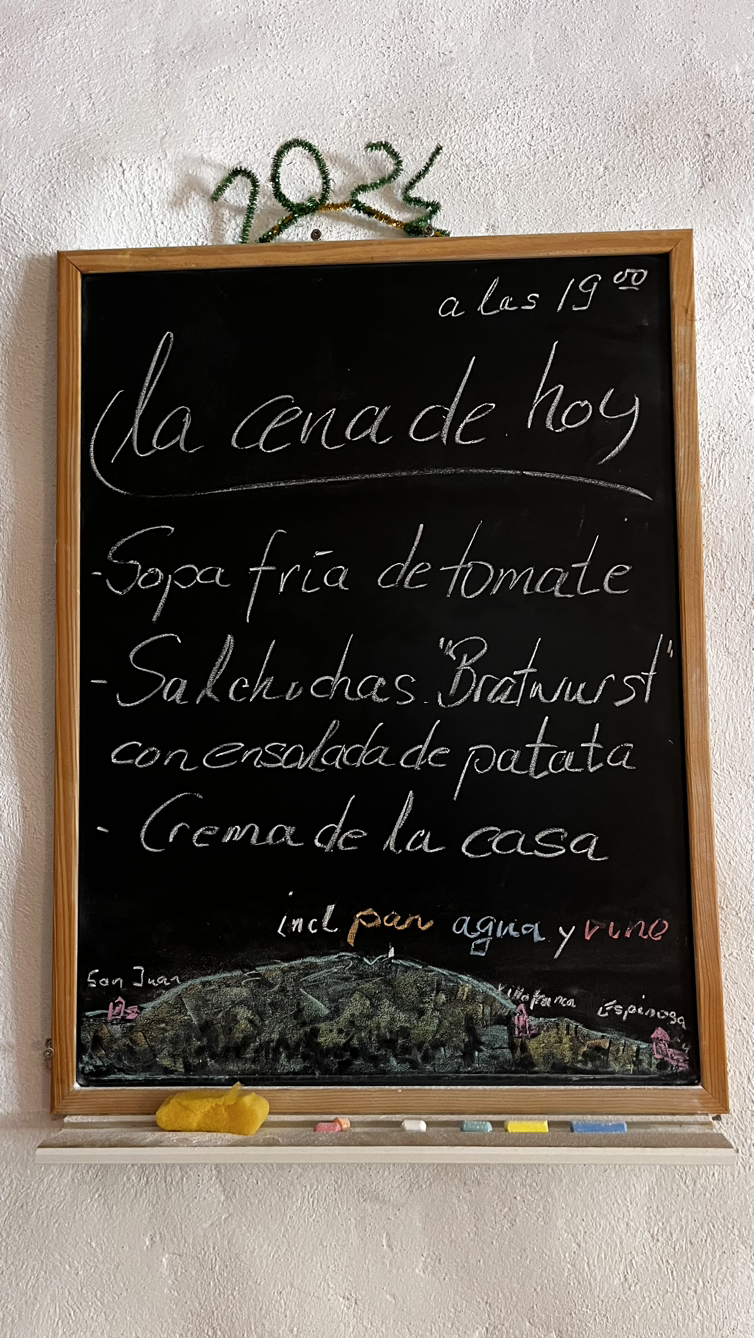 2025
a las 19⁰⁰
la cena de hoy
- Sopa fría de tomate
- Salchichas "Bratwurst"
con ensalada de patata
- Crema de la casa
incl pan agua y vino
San Juan
Villafranca
Espinosa